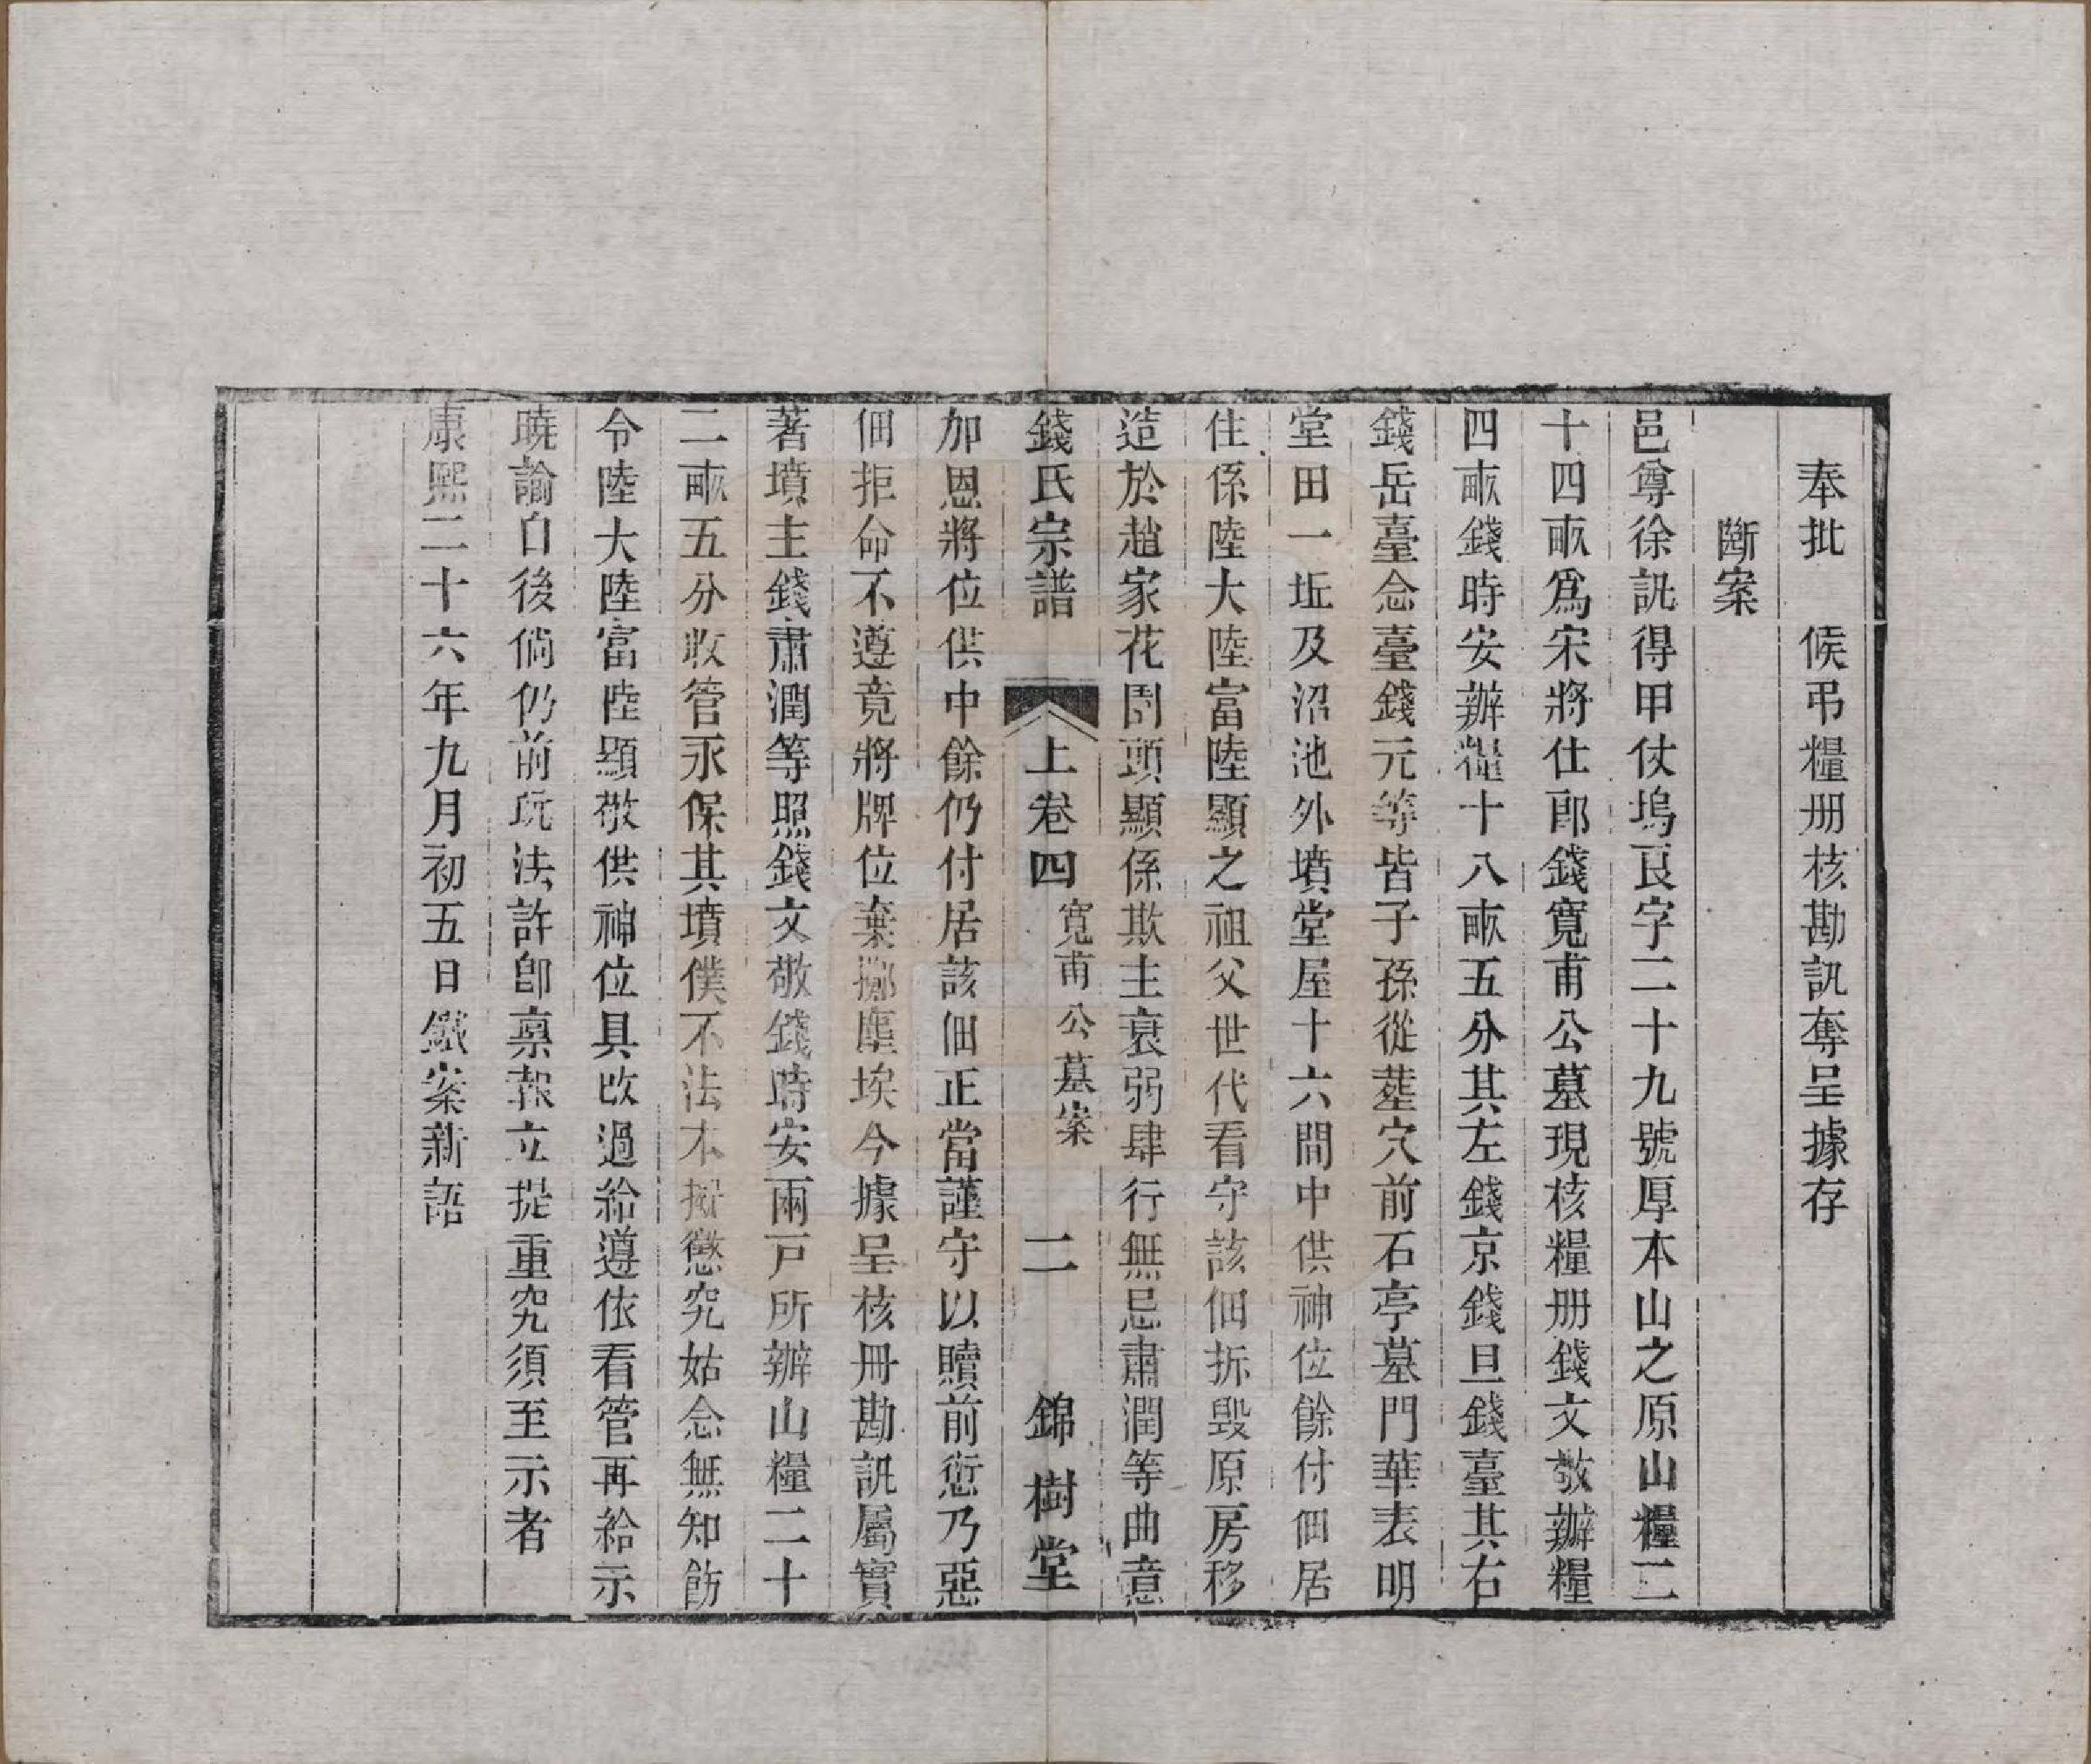 奉批　候弔糧册核勘訊奪呈據存
斷案
邑尊徐訊得甲仗塢艮字二十九號厚本山之原山糧二
十四畝爲宋將仕郎錢寬甫公墓現核糧册錢文敬辦糧
四畝錢時安辦糧十八畝五分其左錢京錢旦錢臺其右
錢岳臺念臺錢元等皆子孫從塟穴前石亭墓門華表明
堂田一坵及沼池外墳堂屋十六間中供神位餘付佃居
住係陸大陸富陸顯之祖父世代看守該佃拆毀原房移
造於趙家花園頭顯係欺主衰弱肆行無忌肅潤等曲意
錢氏宗譜　上卷四　寬甫公墓案　二　錦樹堂
加恩將位供中餘仍付居該佃正當謹守以贖前愆乃惡
佃拒命不遵竟將牌位棄擲塵埃今據呈核冊勘訊屬實
著墳主錢肅潤等照錢文敬錢時安兩戸所辦山糧二十
二畝五分收管永保其墳僕不法本擬懲究姑念無知飭
令陸大陸富陸顯敬供神位具改過給遵依看管再給示
曉諭自後倘仍前玩法許卽稟報立提重究須至示者
康熙二十六年九月初五日鐵案新語